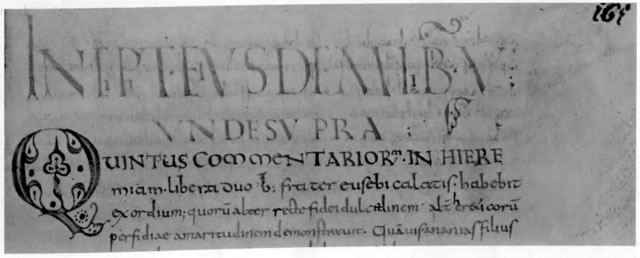 INCIPT EIUSDEM LIB· V·
VNDE SVPRA
QUINTUS COMMENTARIOR̄· IN HIERE
miam· liber a duob: frater eusebi calatis· habebit
exordium; quorū alter recte fidei dulcedinem· alt hereticorū
perfidiae amaritudinem demonstravit· Quāvis ananias filius